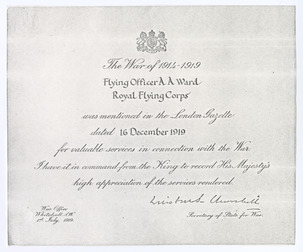 The War of 1914-1919
Flying Officer A A Ward
Royal Flying Corps
was mentioned in the London Gazette
dated 16 December 1919
for valuable services in connection with the War.
I have it in command from the King to record His Majesty's
high appreciation of the services rendered.
Winston S. Churchill
War Office
Whitehall, S.W.
1st July 1919.
Secretary of State for War.